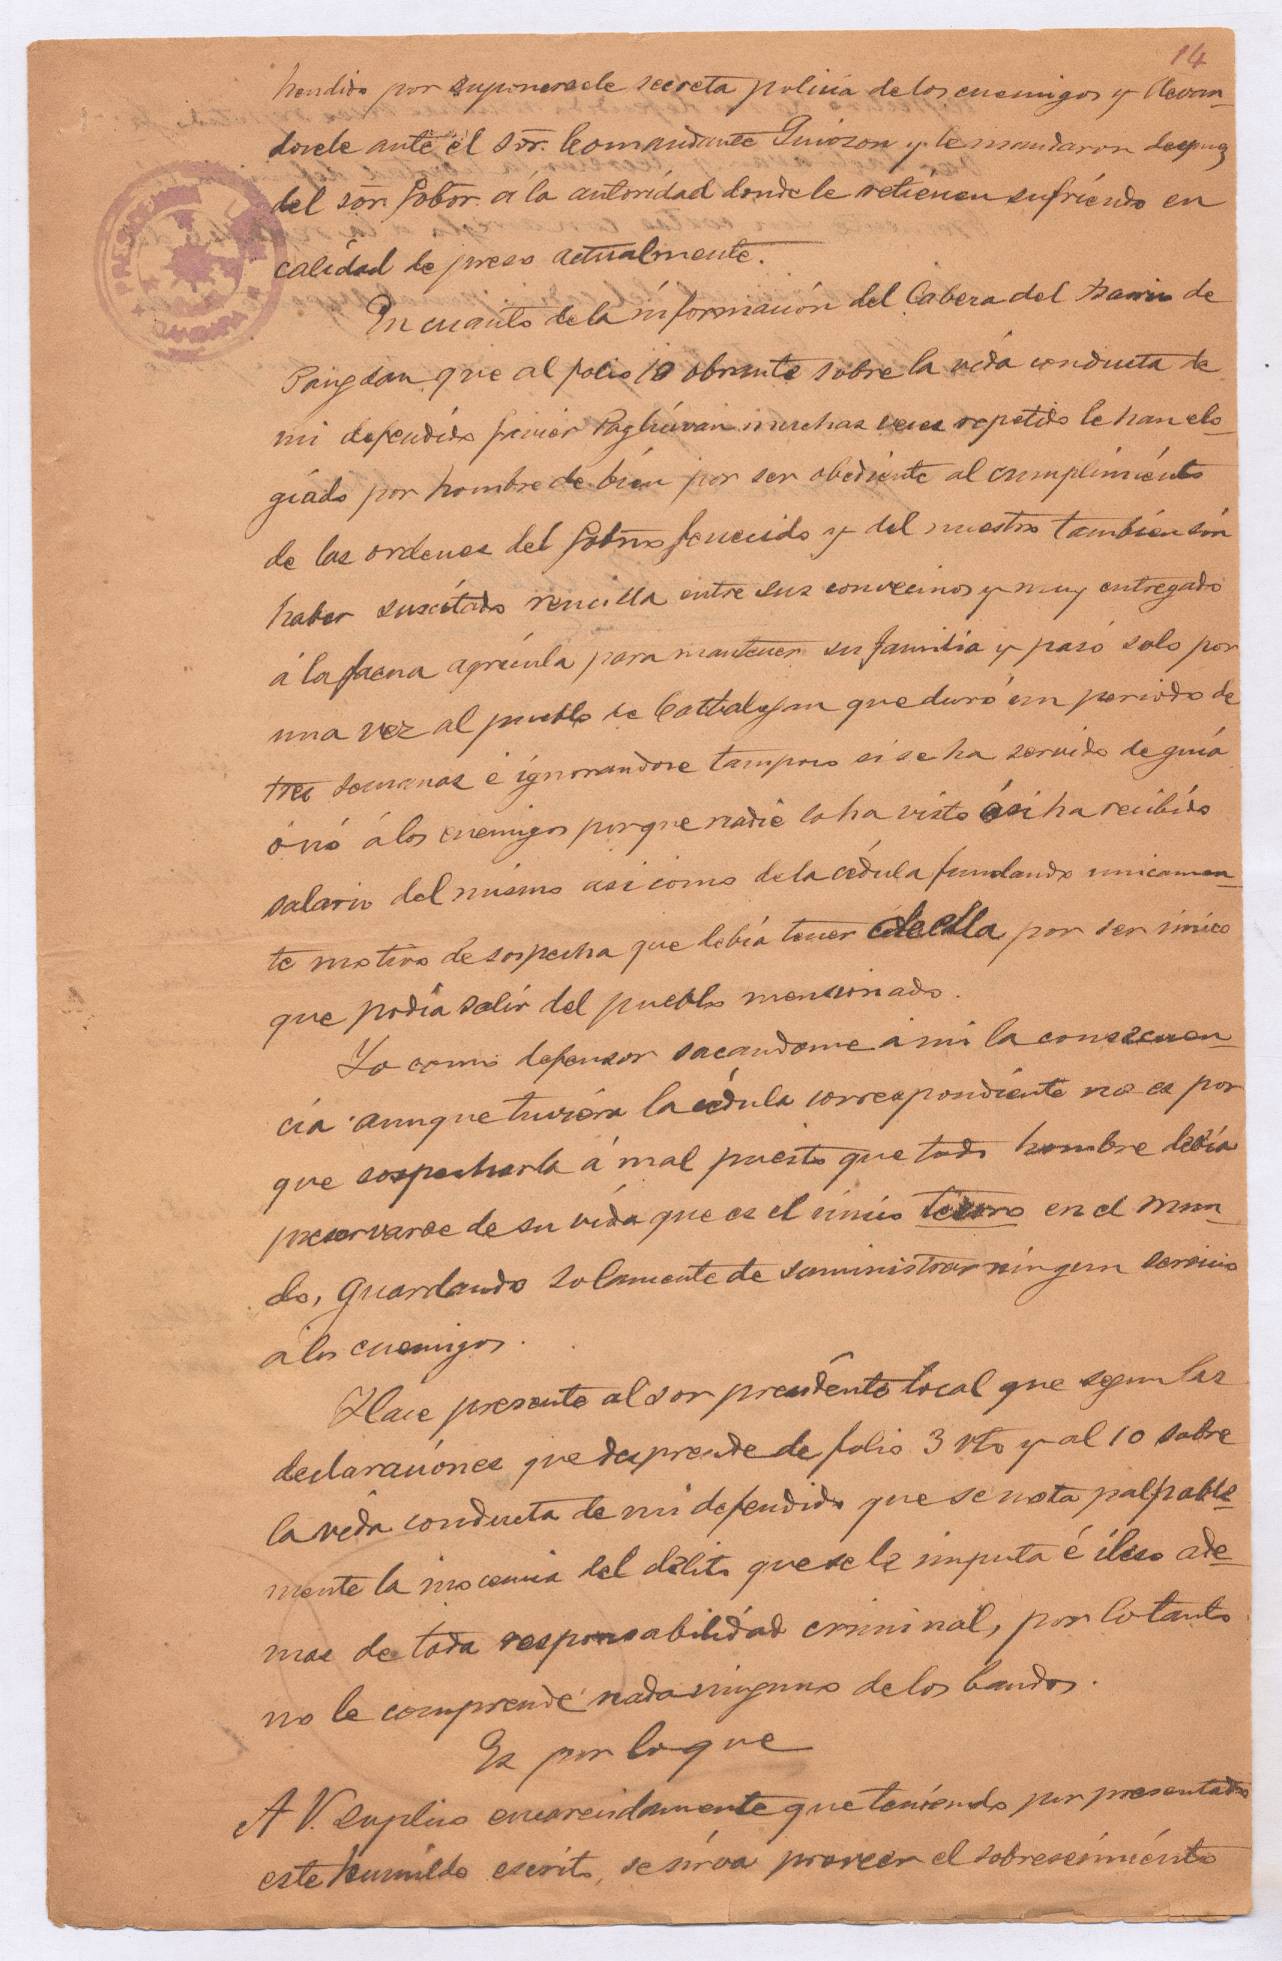 14
hendido por suponersele secreta policia de los enemigos y llevan-
dosele ante el Sor. Comandante Guiozon y le mandaron despues
del Sor. Gobor. á la autoridad donde le retienen sufriendo en
calidad de preso actualmente.
En cuanto de la informacion del Cabeza del barrio de
Pangdan que al folio 10 obrante sobre la vida conducta de
mi defendido Javier Paghúvan muchas veces repetido le han elo-
giado por hombre de bien por ser obediente al cumplimiento
de las ordenes del Gobno fenecido y del nuestro tambien sin
haber suscitado rencilla entre sus convecinos y muy entregado
á la faena agrícula para mantener su familia y pasó solo por
una vez al pueblo de Catbalogan que duró un periodo de
tres semanas é ignorandose tampoco si se ha servido de guia
ó nó á los enemigos porque nadie lo ha visto ó si ha recibido
salario del mismo asi como de la cédula fundando unicamen-
te motivo de sospecha que debia tener de ella por ser único
que podia salir del pueblo mencionado.
Yo como defensor sacandome á mi la consecuen-
cia aunque tuviera la cédula correspondiente no es por
que sospecharla á mal puesto que todo hombre debia
preservarse de su vida que es el único tesoro en el mun-
do, guardando solamente de suministrar ningun servicio
á los enemigos.
Hace presente al Sor presidente local que segun las
declaraciones que desprende de folio 3 vto y al 10 sobre
la vida conducta de mi defendido que se nota palpable-
mente la inocencia del delito que se le imputa é ileso ade-
mas de toda responsabilidad criminal, por lo tanto
no le comprende nada ninguno de los bandos.
Es por lo que
A V. suplico encarecidamente que teniendo por presentado
este humildo escrito, se sirva proveer el sobreseimiento